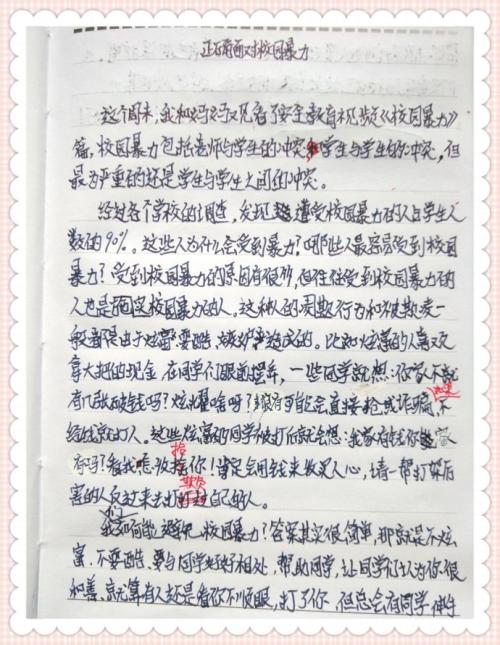 正确面对校园暴力
这个周末,我和妈妈观看了安全教育视频《校园暴力》
篇,校园暴力包括老师与学生的冲突和学生与学生的冲突,但
最为严重的还是学生与学生之间的冲突。
经过各个学校的调查,发现遭受校园暴力的人占学生人
数的90%。这些人为什么会受到暴力?哪些人最容易受到校园
暴力?受到校园暴力的原因有很多,但往往受到校园暴力的
人也是制造校园暴力的人。这种人的行为和
般都是由于炫富、耍酷、嫉妒造成的。比如炫富的人喜欢
拿大把的现金在同学们眼前摆弄,一些同学就想:你家不就
有几个破钱吗?炫耀啥呀?就有可能会直接抢或诈骗,不
给钱就打人。这些炫富的同学被打后就会想:我家有钱你
有吗?看我怎么收拾你!肯定会用钱来收买人心,请一帮打架厉
害的人反过来去打欺负自己的人。
我们如何能避免校园暴力?答案其实很简单,那就是不炫
富、不耍酷、要与同学好好相处,帮助同学,让同学们认为你很
和善,就算有人还是看你不顺眼,打了你,但总会有同学伸